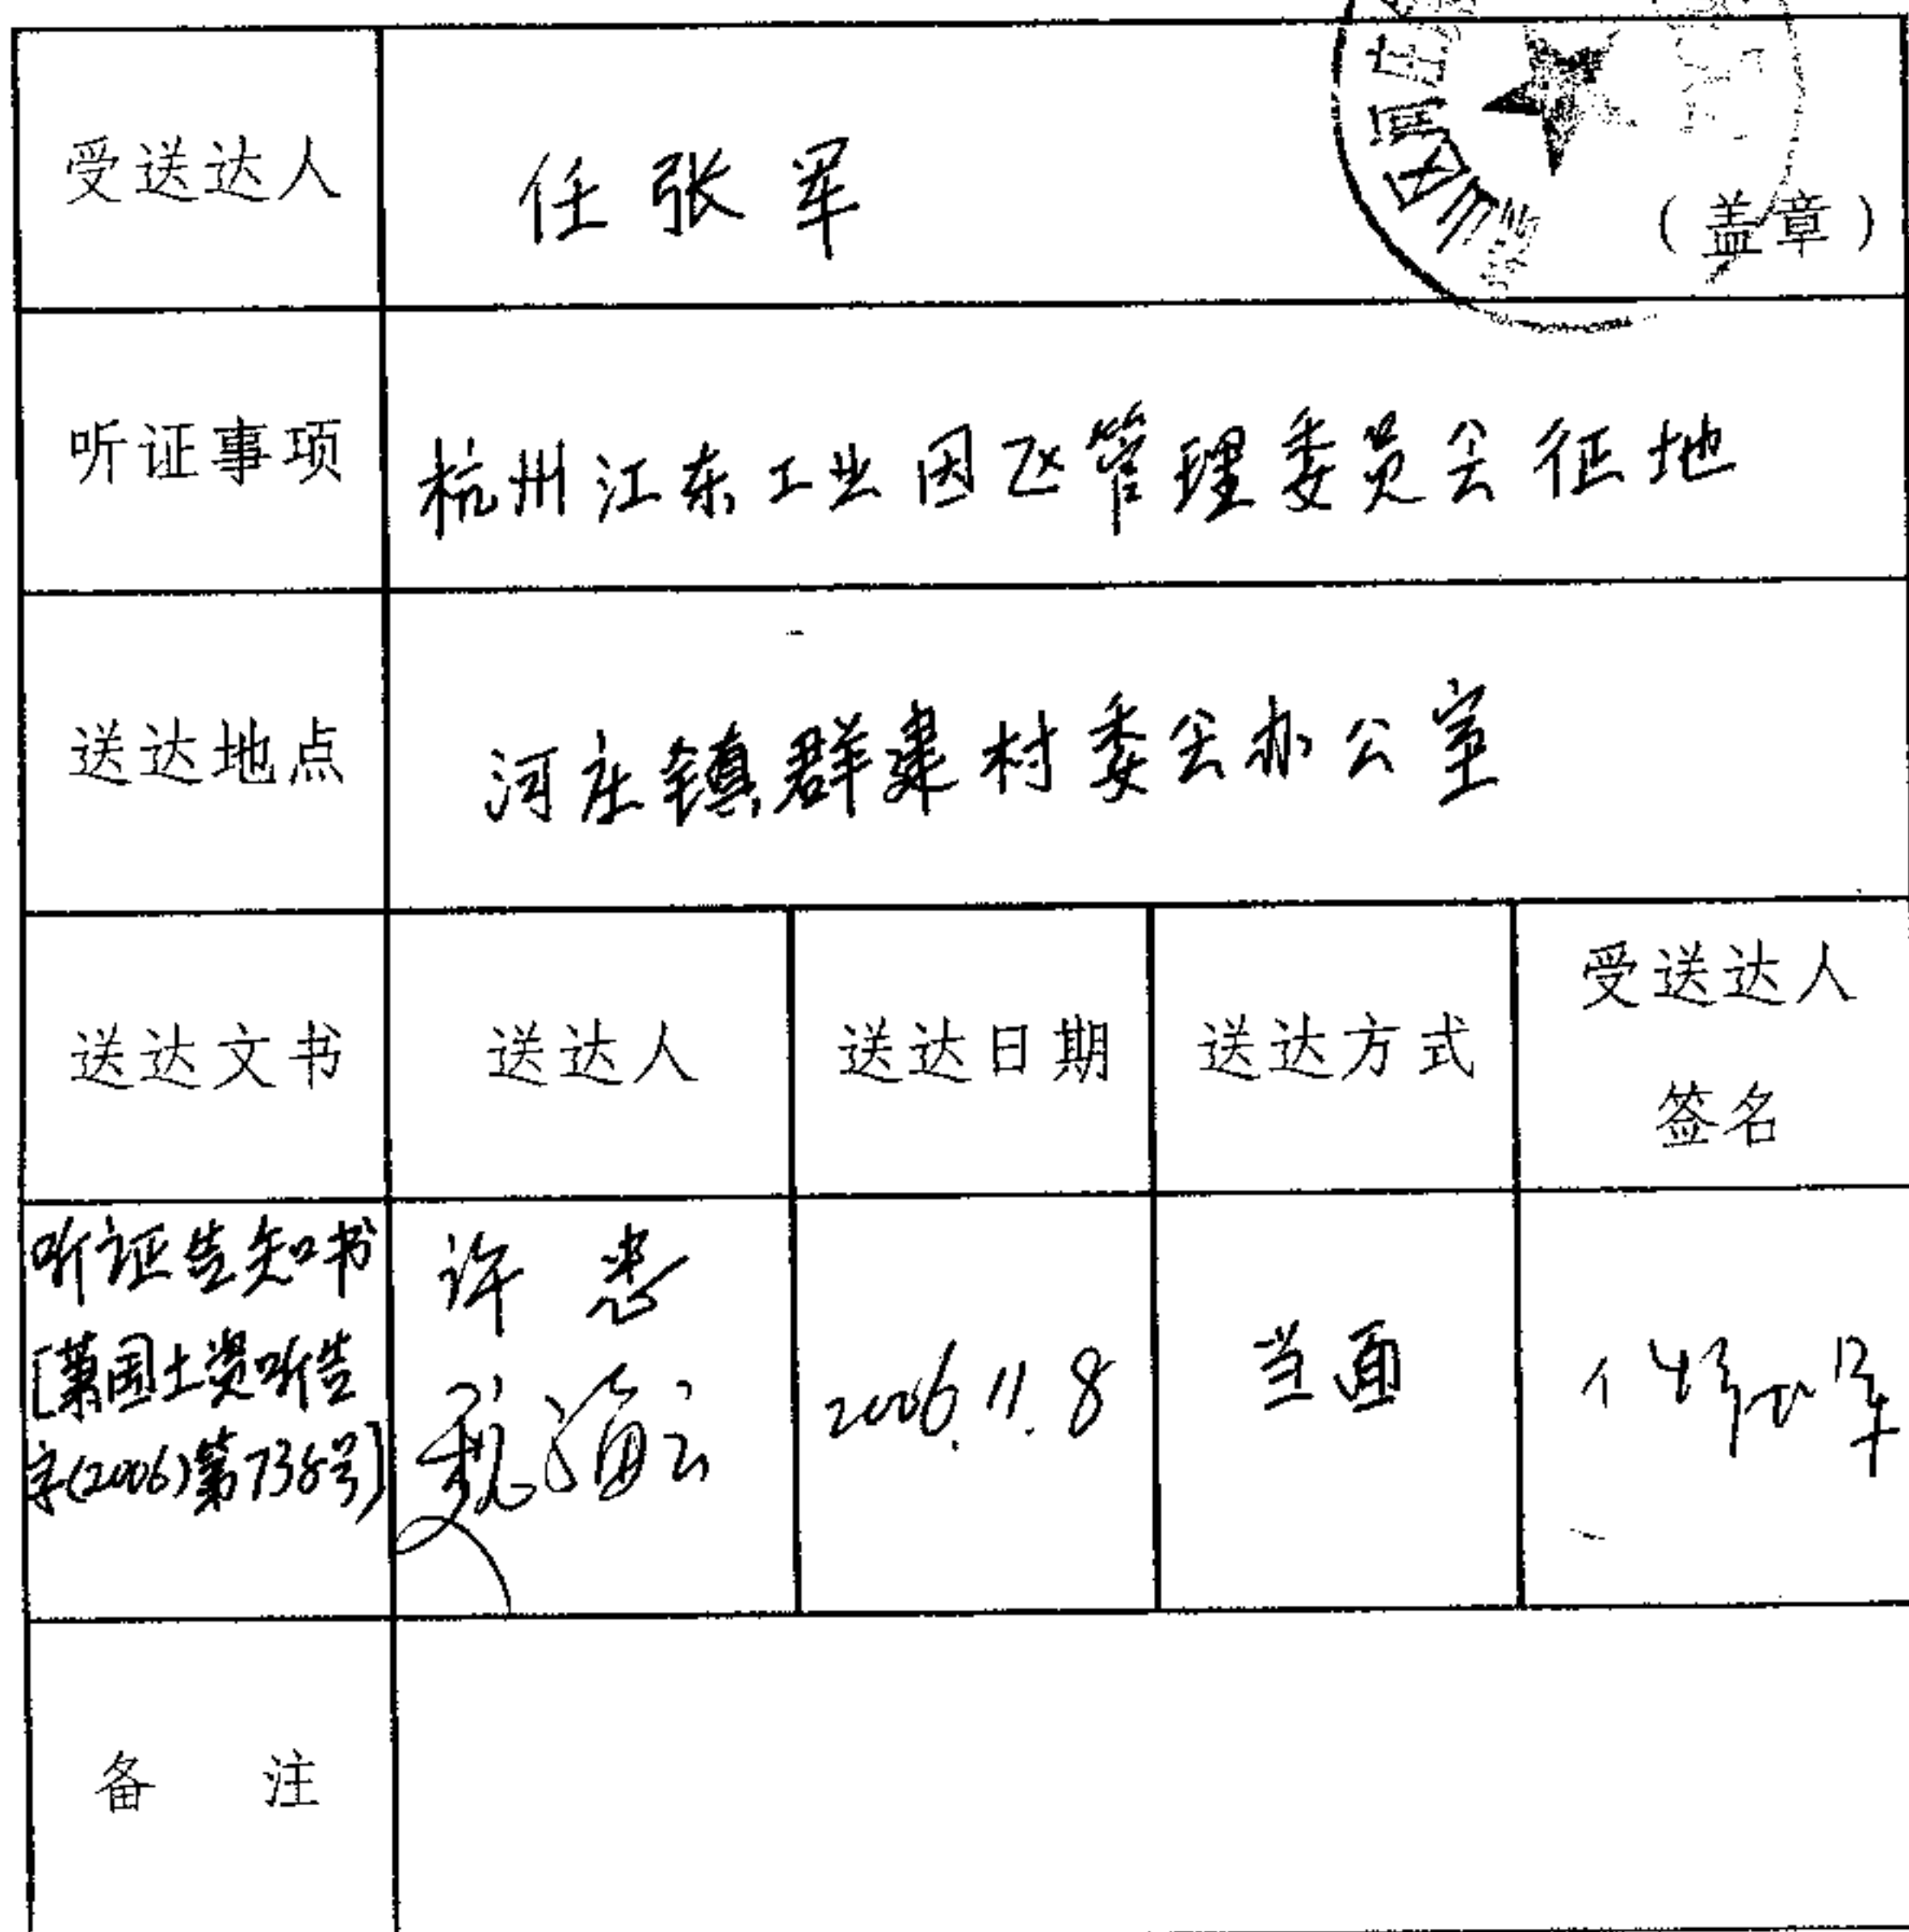 受送达人
任张军
(盖章)
听证事项
杭州江东工业园区管理委员会征地
送达地点
河庄镇群建村委会办公室
送达文书
送达人
送达日期
送达方式
受送达人
签名
听证告知书
[萧国土资听告
字(2006)第738号]
许
2006.11.8
当面
备 注